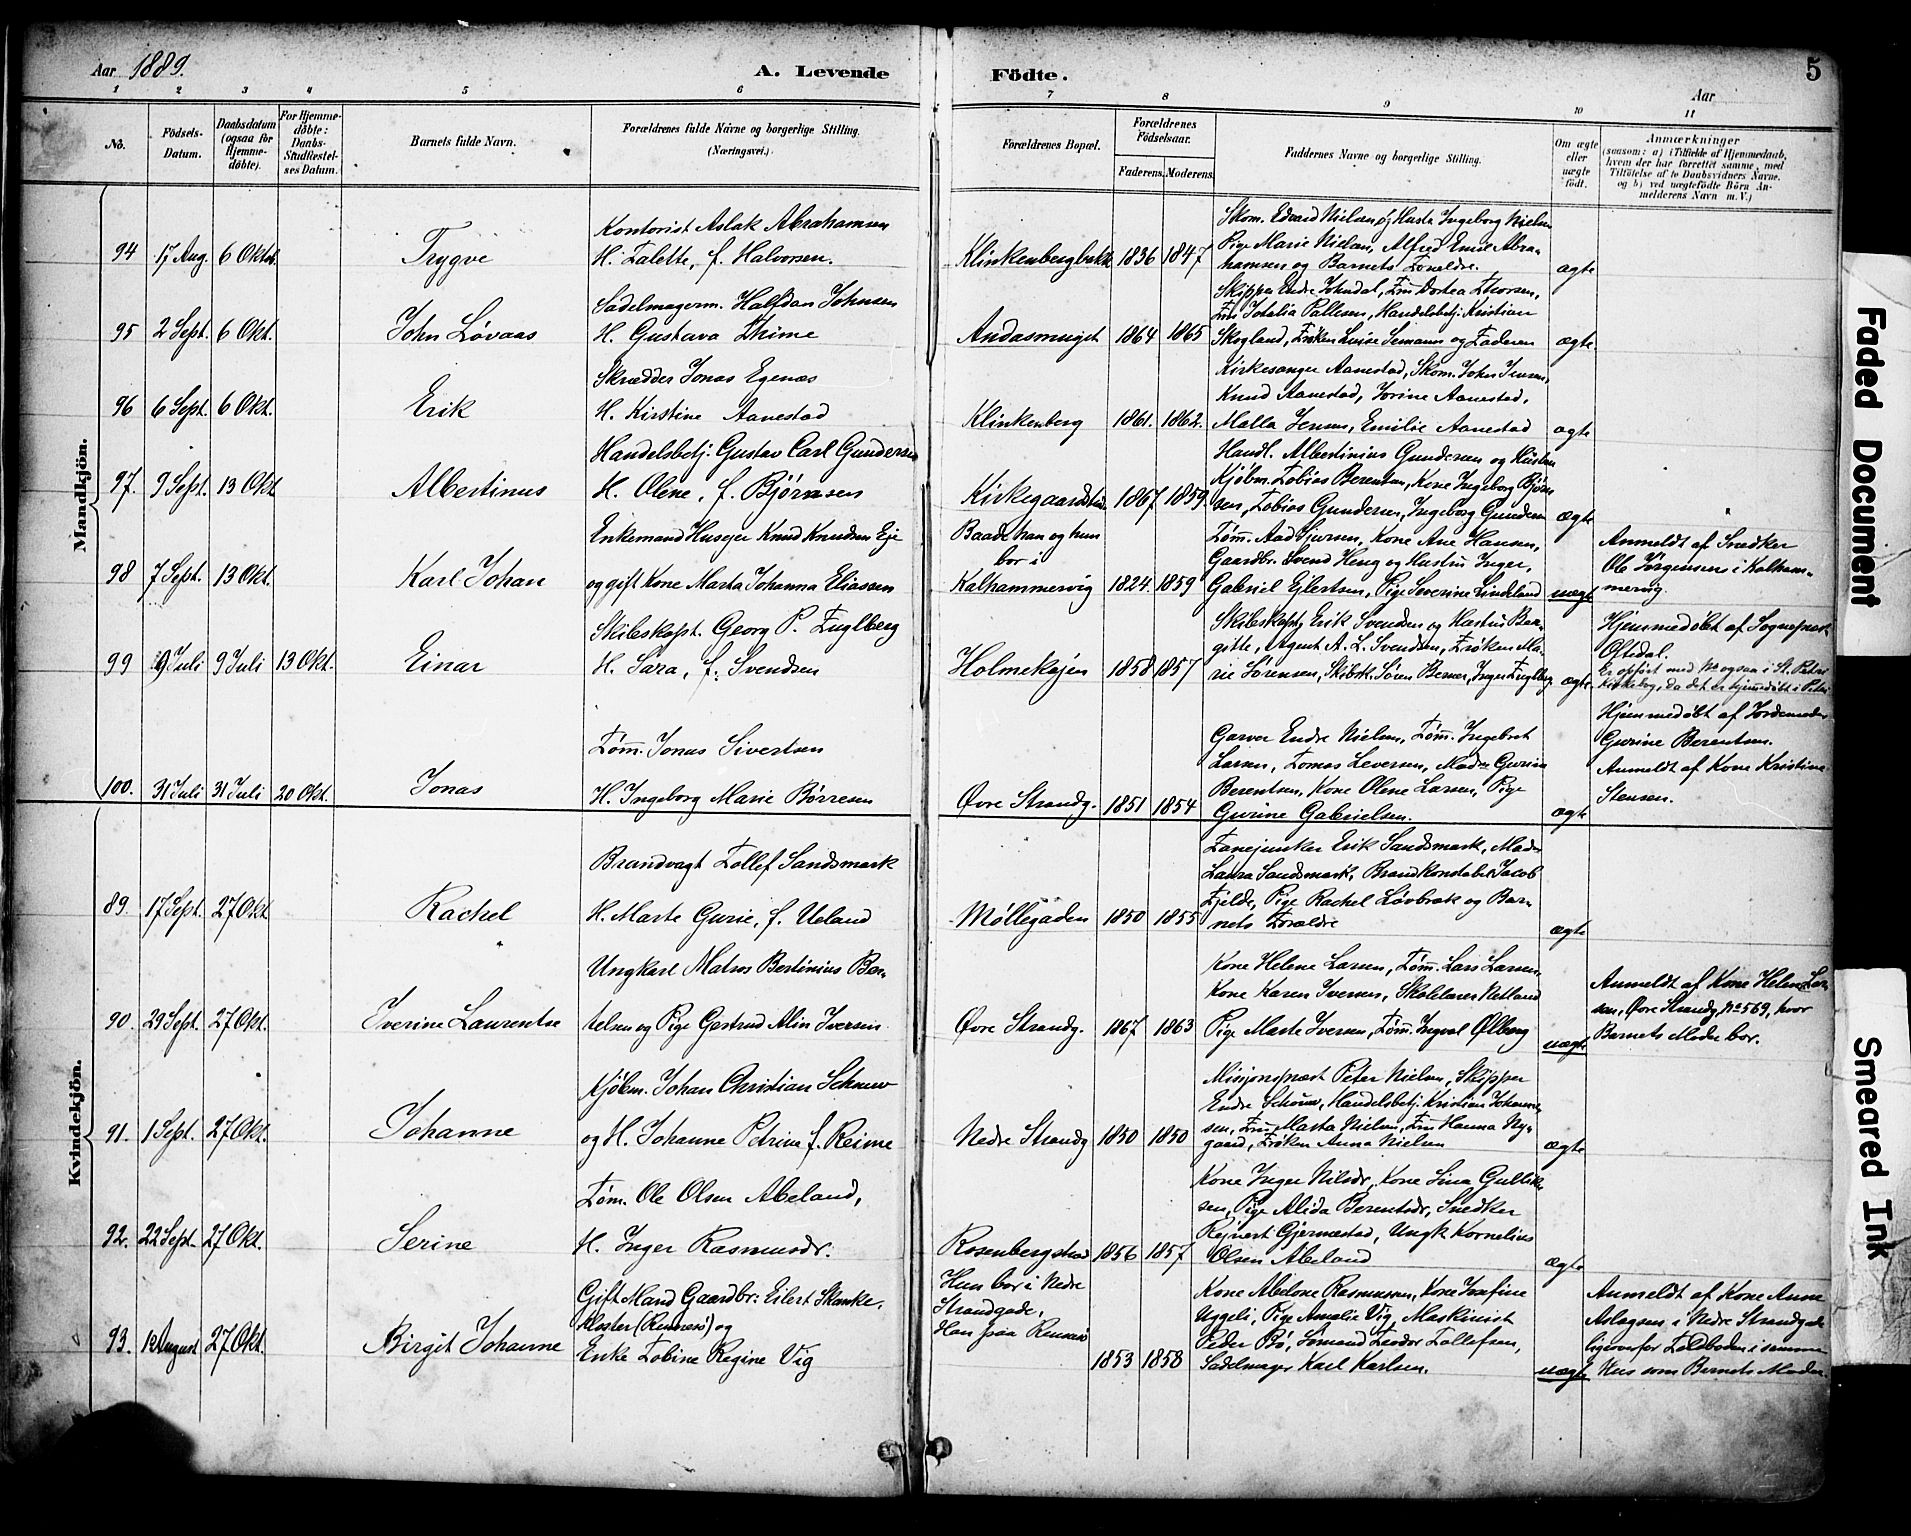 Aar 1889.
A. Levende
Födte.
5
Aar
1 2 3 4 5 6 7 8 9 10 11
No.
Födsels-
Datum.
Daabsdatum
(ogsaa for
Hjemme-
döbte).
For Hjemme-
döbte:
Daabs-
Stadfæstel-
ses Datum.
Barnets fulde Navn.
Forældrenes fulde Navne og borgerlige Stilling.
(Næringsvei.)
Forældrenes Bopæl.
Forældrenes
Födselsaar.
Faderens. Moderens.
Faddernes Navne og borgerlige Stilling.
Om ægte
eller
uægte
født.
Anmærkninger
(saasom: a) i Tilfælde af Hjemmedaab,
hvem der har forrettet samme, med
Tilföielse af to Daabsvidners Navne.
og b) ved uægtefödte Börn An-
melderens Navn m.V.)
Mandkjön.
94 17 Aug. 6 Oktb.
Trygve
Kontorist Aslak Abrahamsen
H. Talette, f. Halvorsen.
Klinkenbergbakk 1836 1847
Skom. Edvard Nielsen og Hustr Ingeborg Nielsen
Pige Marie Nielsen, Alfred Emil Abra-
hamsen og Barnets Forældre.
ægte
95 2 Sept. 6 Okt.
John Løvaas
Sadelmagerm. Halfdan Johnsen
H. Gustava Thime
Andasmuget 1864 1865
Skipper Endre Johndal, Fru Dortea Thorsen,
Fru Johalia Pallesen, Handelsbetj. Kristian
Skogland, Frøken Luise Semann og Faderen
ægte
96 6 Sept. 6 Okt.
Erik
Skrædder Jonas Egenæs
H. Kirstine Aanestad
Klinkenberg 1861. 1862.
Kirkesanger Aanestad, Skom. John Jensen,
Knud Aanestad, Jorine Aanestad,
Malla Jensen, Emilie Aanestad
ægte
97. 9 Sept. 13 Okt
Albertinus
Handelsbetj: Gustav Carl Gundersen
H. Olene, f. Bjørnsen
Kirkegaardstien 1867 1859.
Handl. Albertinius Gundersen og Hustru
Kjøbm. Tobias Berentsen, Kone Ingeborg Bjørn
sen, Tobias Gundersen, Ingeborg Gundersen
ægte
98 7 Sept. 13 Okt.
Karl Johan
Enkemand Husejer Knud Knudsen Eje
og gift Kone Marta Johanna Eliassen
Baade han og hun
bor i
Kalhammervig 1824. 1859
Tøm. Aad Gjersen, Kone Ane Hansen,
Gaardbr. Svend Heng og Hustru Inger,
Gabriel Ejlertsen, Pige Severine Lindeland
uægte
Anmeldt af Snedker
Ole Jørgensen i Kalham-
mervig.
99 9 Juli 9 Juli 13 Okt.
Einar
Skibskapt. Georg P. Fuglberg
H. Sara, f. Svendsen
Holmekajen 1858 1857
Skibskapt. Erik Svendsen og Hustru Ber-
gitte, Agent A. L. Svendsen, Frøken Ma-
rie Sørensen, Skibsk. Søren Berner, Inger Fuglberg
ægte
Hjemmedøbt af Sognepræst
Oftedal.
Er opført med No ogsaa i St. Petri
Kirkebog, da det er hjemmedøbt i Petri
100. 31 Juli 31 Juli 20 Okt.
Jonas
Tøm. Jonas Sivertsen
H. Ingeborg Marie Børresen
Øvre Strandg. 1851 1854
Garver Endre Nielsen, Tøm. Ingebret
Larsen, Tomas Leversen, Madm Gurine
Berentsen, Kone Olene Larsen, Pige
Gurine Gabrielsen.
ægte
Hjemmedøbt af Jordemoder
Gurine Berentsen.
Anmeldt af Kone Kristine
Stensen.
Kvindekjön.
89. 17 Sept. 27 Okt
Rachel
Brandvagt Tollef Sandsmark
H. Marte Gurie, f. Ueland
Møllegaden 1850 1855
Fanejunker Erik Sandsmark, Mad.
Laura Sandsmark, Brandkonstabel Jacob
Fjelde, Pige Rachel Løvbrek og Bar-
nets Forældre
ægte
90 29 Sept. 27 Okt.
Iverine Laurentse
Ungkarl Matros Bertinius Ber-
telsen og Pige Gertrud Alin Iversen
Øvre Strandg. 1867 1863
Kone Helene Larsen, Tøm. Lars Larsen,
Kone Karen Iversen, Skolelærer Netland
Pige Marte Iversen, Tøm. Ingval Ølberg
uægte
Anmeldt af Kone Helene Lar-
sen, Øvre Strandg. No 569, hvor
Barnets Moder bor.
91. 1 Sept. 27 Okt.
Johanne
Kjøbm. Johan Christian Schouw
og H. Johanne Petrine f. Reime
Nedre Strandg 1850 1850
Missjonspræst Peter Nielsen, Skipper
Endre Schouw, Handelsbetj. Kristian Johanne-
sen, Fru Marta Nielsen, Fru Hanna Ny-
gaard, Frøken Anna Nielsen
ægte
92. 22 Sept. 27 Okt.
Serine
Tøm. Ole Olsen Abeland,
H. Inger Rasmusdr.
Rosenbergstrad 1856 1857
Kone Inger Nilsdr, Kone Sina Gullik-
sen, Pige Alida Berentsdr, Snedker
Rejnert Gjermestad, Ungk Kornelius
Olsen Abeland
ægte
93. 12 August 27 Okt.
Birgit Johanne
Gift Mand Gaardbr: Eilert Skanke,
kloster (Rennesø) og
Enke Tobine Regine Vig
Hun bor i Nedre
Strandgade.
Han paa Rennesø
1853 1858
Kone Abelone Rasmussen, Kone Josefine
Uggeli, Pige Amalie Vig, Maskinist
Peder Bø, Sømand Teodor Tollefsen,
Sadelmager Karl Karlsen.
uægte
Anmeldt af Kone Anne
Aslagsen i Nedre Strandgade
ligeoverfor Toldboden i samme
Hus som Barnets Moder.
Faded Document
Smeared Ink